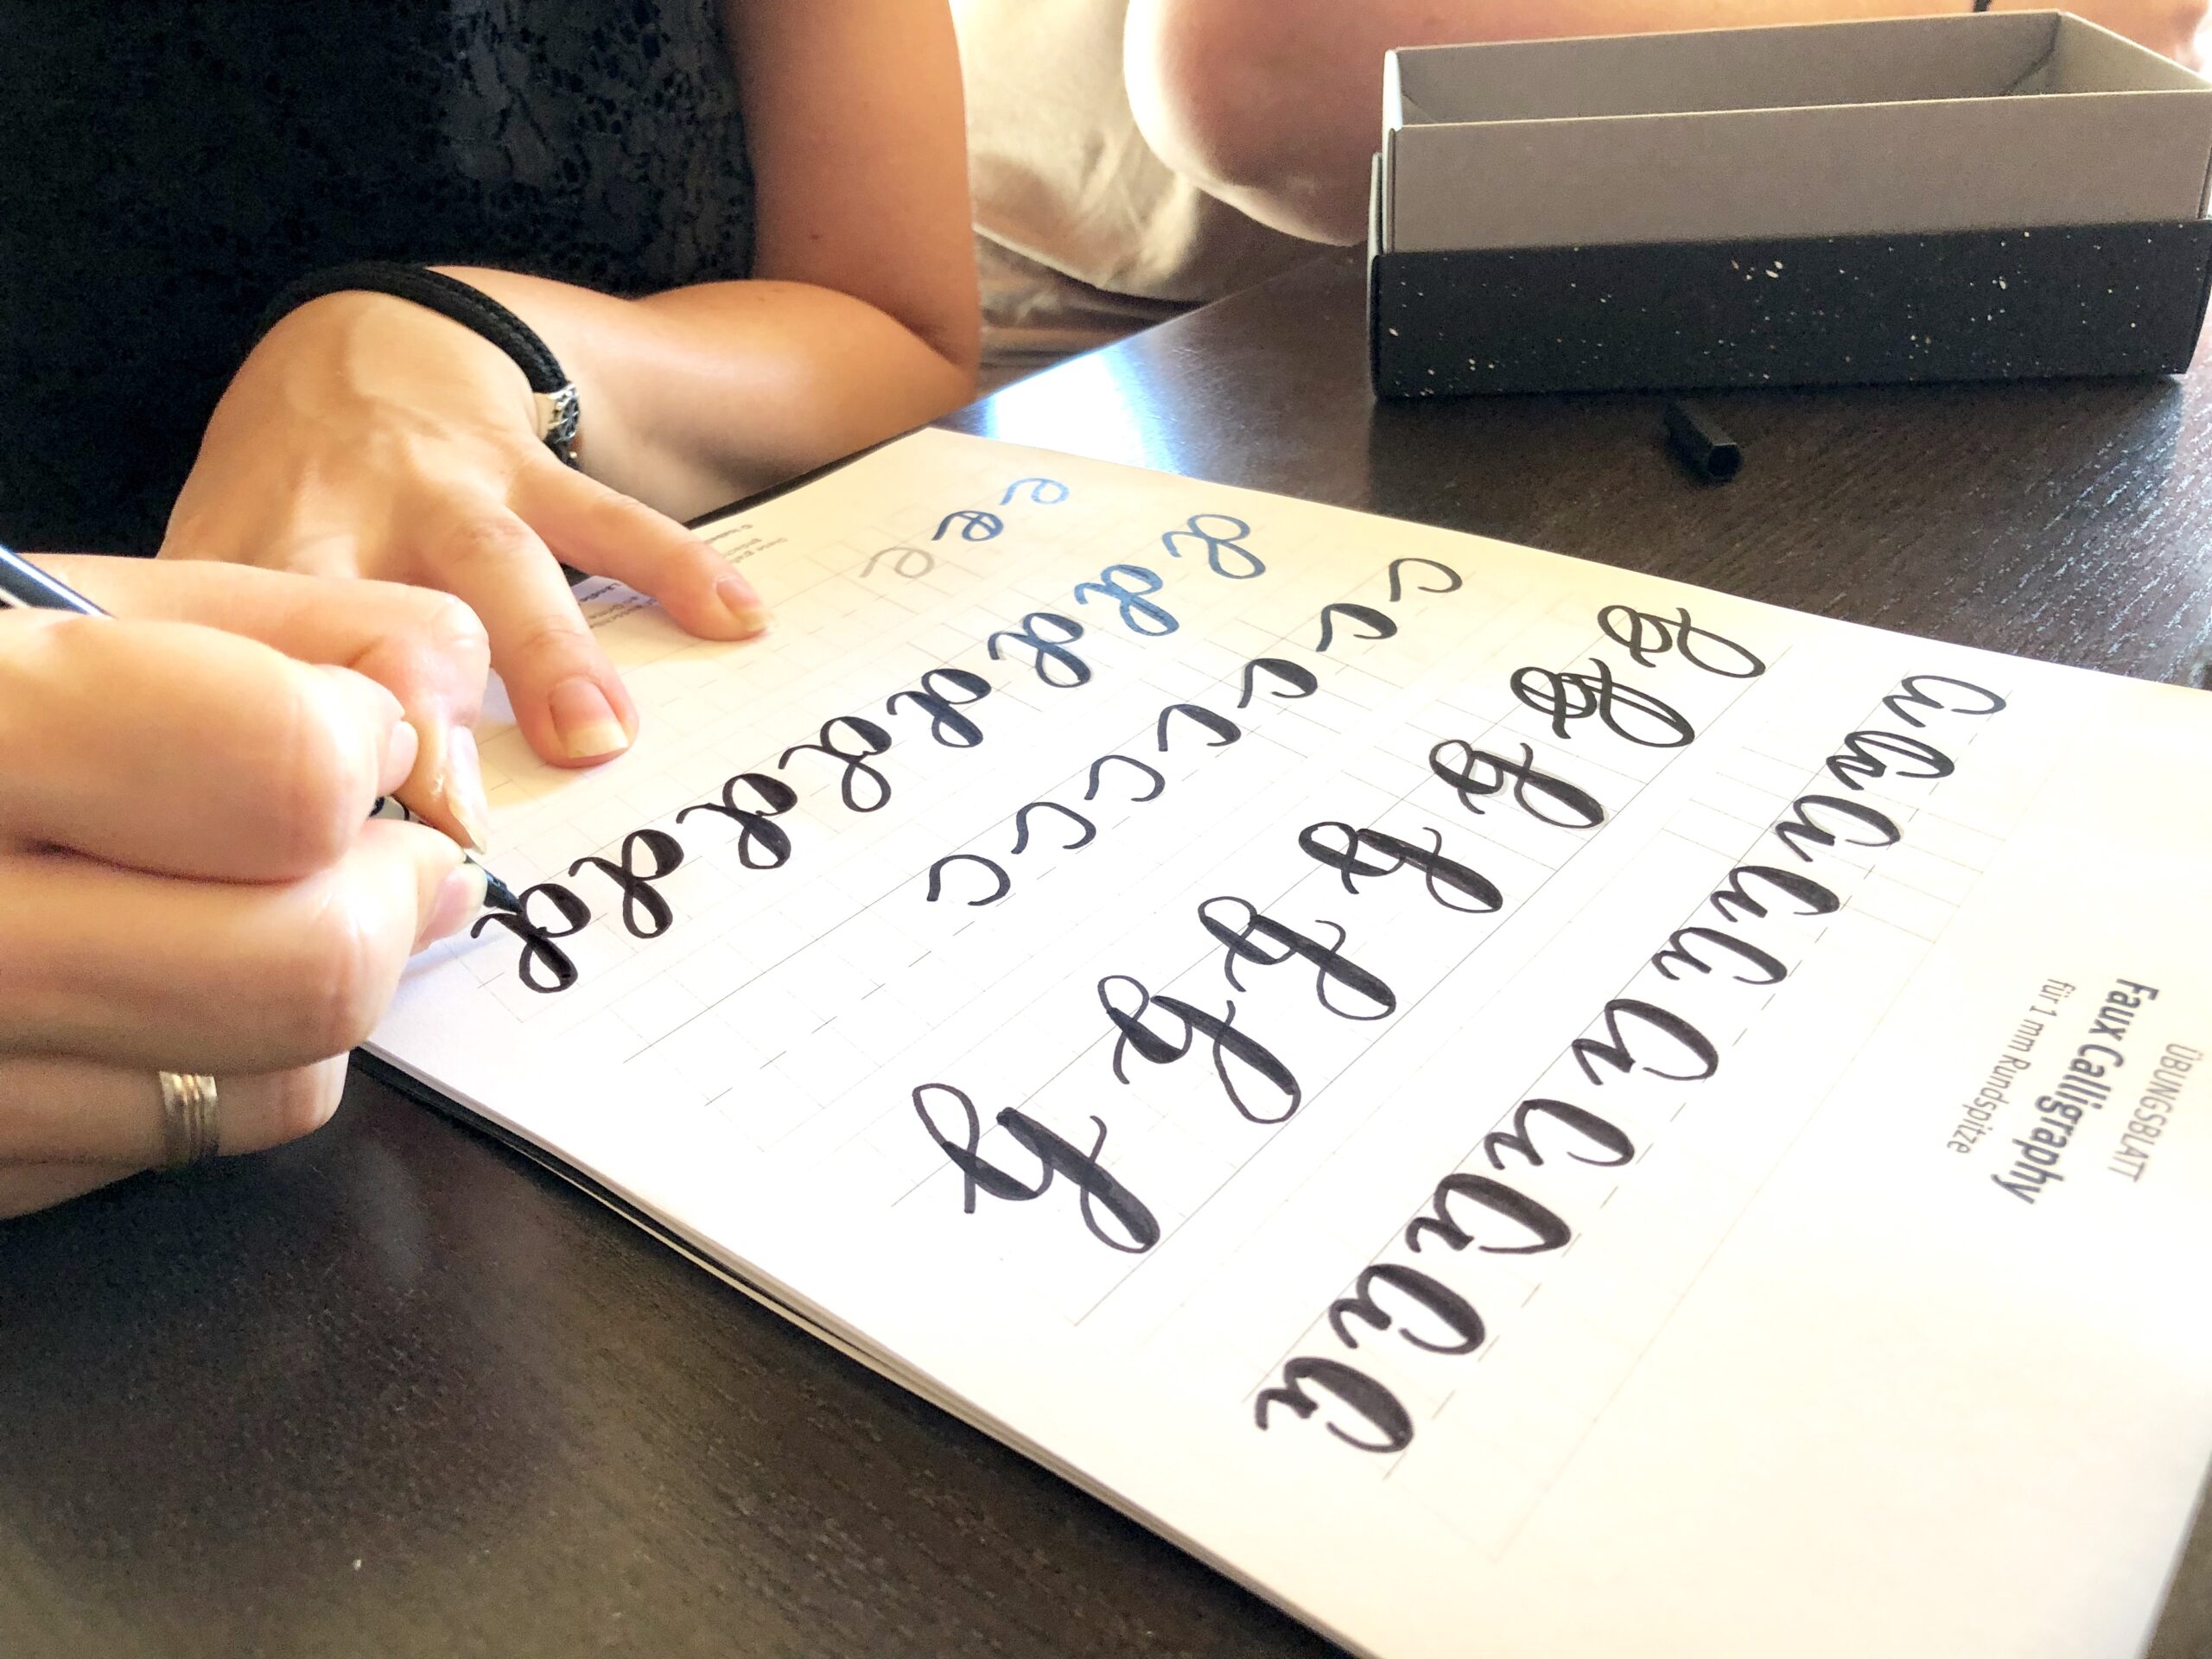 ÜBUNGSBLATT
Faux Calligraphy
für 1 mm Rundspitze
a a a a a a a a a a
b b b b b b b
c c c c c c c
d d d d d d d d
e e e